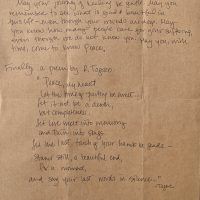 May your journey of healing be gentle. May you
remember to see what is good & beautiful in
this life – even though your wounds are deep. May
you know how many people care for your suffering,
even though we do not know you. May you, with
time, come to know peace.
Finally a poem by R. Tagore:
"Peace, my heart
Let the time for parting be sweet.
Let it not be a death,
but completeness.
Let love melt into memory
and pain into songs.
Let the last touch of your hands be gentle –
Stand still, o beautiful end,
for a moment,
and say your last words in silence."
– Tagore